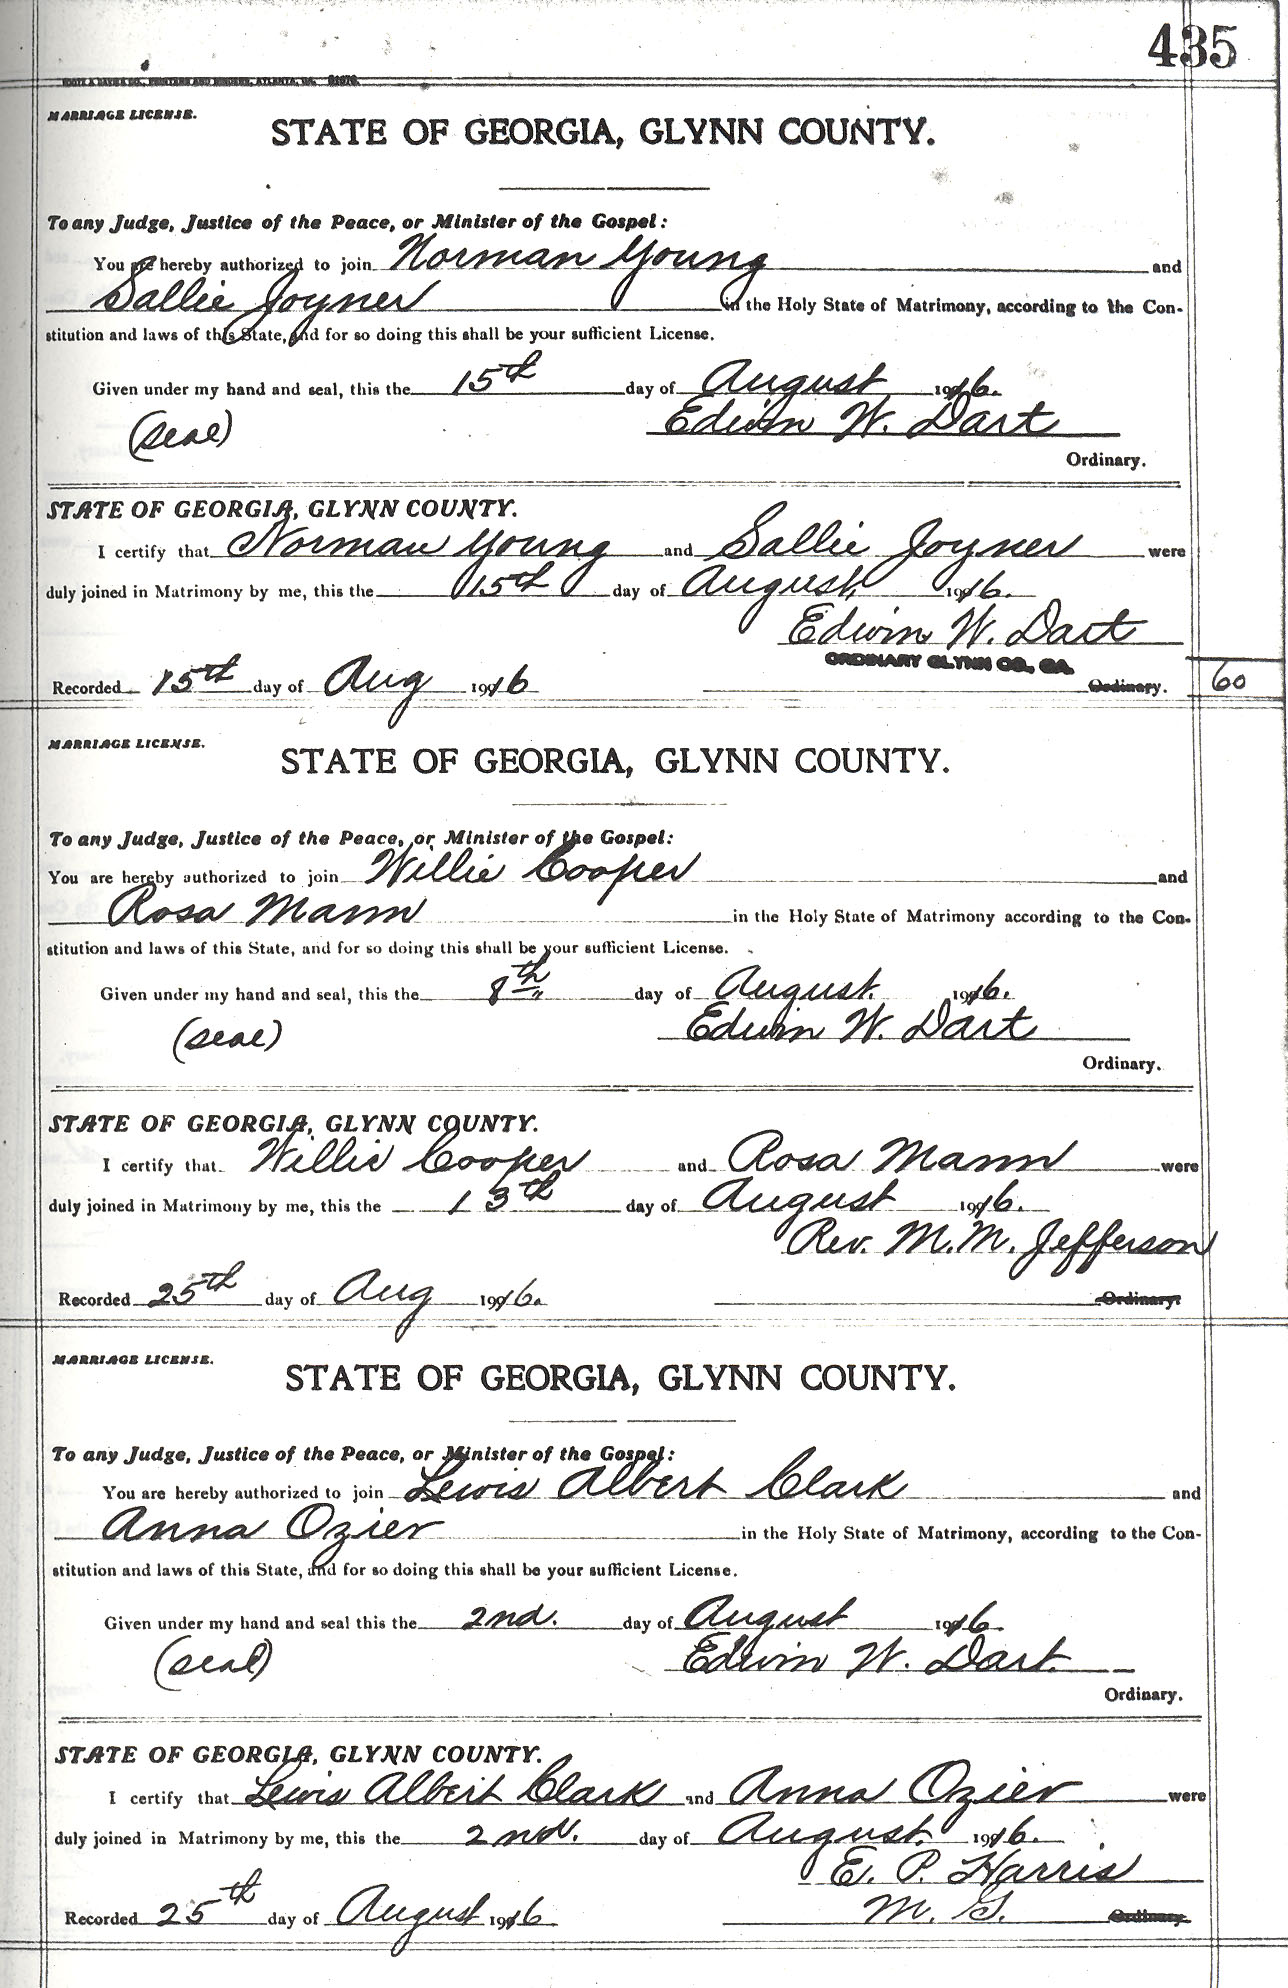 435
FOOTE & DAVIES CO., PRINTERS AND BINDERS, ATLANTA, GA.
MARRIAGE LICENSE.
STATE OF GEORGIA, GLYNN COUNTY.
To any Judge, Justice of the Peace, or Minister of the Gospel:
You are hereby authorized to join Norman Young and
Sallie Joyner in the Holy State of Matrimony, according to the Con-
stitution and laws of this State, and for so doing this shall be your sufficient License.
Given under my hand and seal, this the 15th day of August 1916.
(seal) Edwin W. Dart
Ordinary.
STATE OF GEORGIA, GLYNN COUNTY.
I certify that Norman Young and Sallie Joyner were
duly joined in Matrimony by me, this the 15th day of August, 1916.
Edwin W. Dart
ORDINARY GLYNN CO., GA.
Recorded 15th day of Aug 1916 Ordinary. 60
MARRIAGE LICENSE.
STATE OF GEORGIA, GLYNN COUNTY.
To any Judge, Justice of the Peace, or Minister of the Gospel:
You are hereby authorized to join Willie Cooper and
Rosa Mann in the Holy State of Matrimony according to the Con-
stitution and laws of this State, and for so doing this shall be your sufficient License.
Given under my hand and seal, this the 8th day of August. 1916.
(seal) Edwin W. Dart
Ordinary.
STATE OF GEORGIA, GLYNN COUNTY.
I certify that Willie Cooper and Rosa Mann were
duly joined in Matrimony by me, this the 13th day of August 1916.
Rev. M. M. Jefferson
Recorded 25th day of Aug 1916. Ordinary.
MARRIAGE LICENSE.
STATE OF GEORGIA, GLYNN COUNTY.
To any Judge, Justice of the Peace, or Minister of the Gospel:
You are hereby authorized to join Lewis Albert Clark and
Anna Ozier in the Holy State of Matrimony, according to the Con-
stitution and laws of this State, and for so doing this shall be your sufficient License.
Given under my hand and seal this the 2nd. day of August 1916.
(seal) Edwin W. Dart.
Ordinary.
STATE OF GEORGIA, GLYNN COUNTY.
I certify that Lewis Albert Clark and Anna Ozier were
duly joined in Matrimony by me, this the 2nd. day of August. 1916.
E. P. Harris
Recorded 25th day of August 1916 M. G. Ordinary.